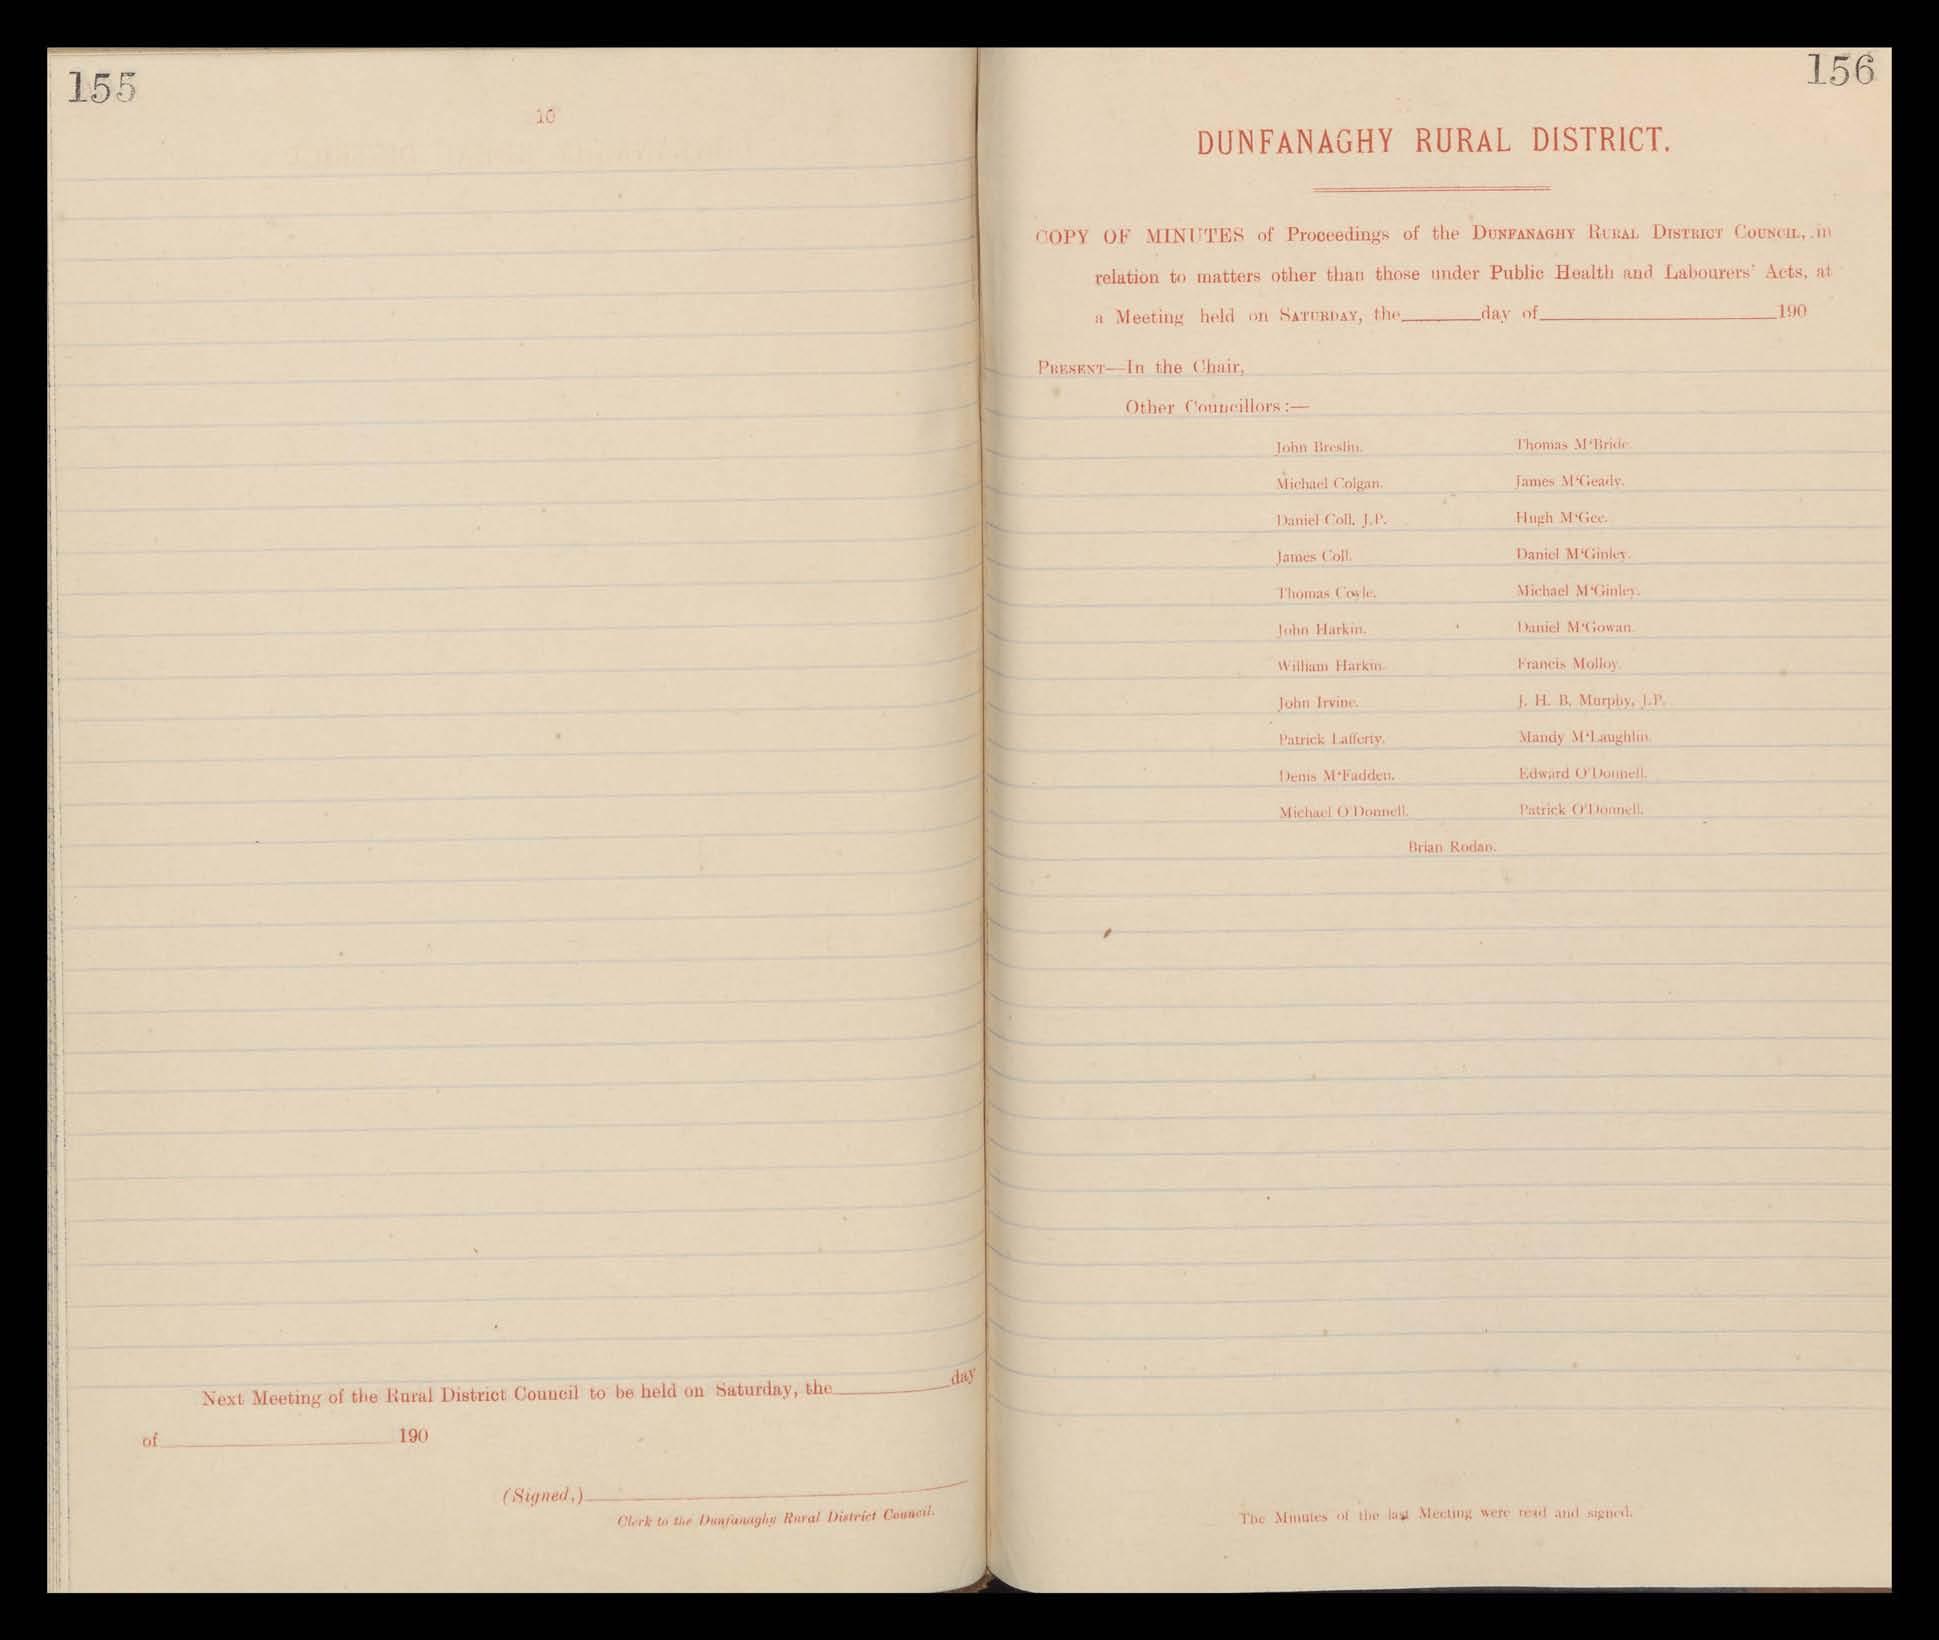 155
10
Next Meeting of the Rural District Council to be held on Saturday, the day
of 190
(Signed,)
Clerk to the Dunfanaghy Rural District Council.
156
DUNFANAGHY RURAL DISTRICT.
COPY OF MINUTES of Proceedings of the DUNFANAGHY RURAL DISTRICT COUNCIL, in
relation to matters other than those under Public Health and Labourers' Acts, at
a Meeting held on SATURDAY, the day of 190
PRESENT—In the Chair,
Other Councillors:—
John Breslin. Thomas M‘Bride.
Michael Colgan. James M‘Geady.
Daniel Coll, J.P. Hugh M‘Gee.
James Coll. Daniel M‘Ginley.
Thomas Coyle. Michael M‘Ginley.
John Harkin. Daniel M‘Gowan.
William Harkin. Francis Molloy.
John Irvine. J. H. B. Murphy, J.P.
Patrick Lafferty. Mandy M‘Laughlin.
Denis M‘Fadden. Edward O'Donnell.
Michael O'Donnell. Patrick O'Donnell.
Brian Rodan.
The Minutes of the last Meeting were read and signed.